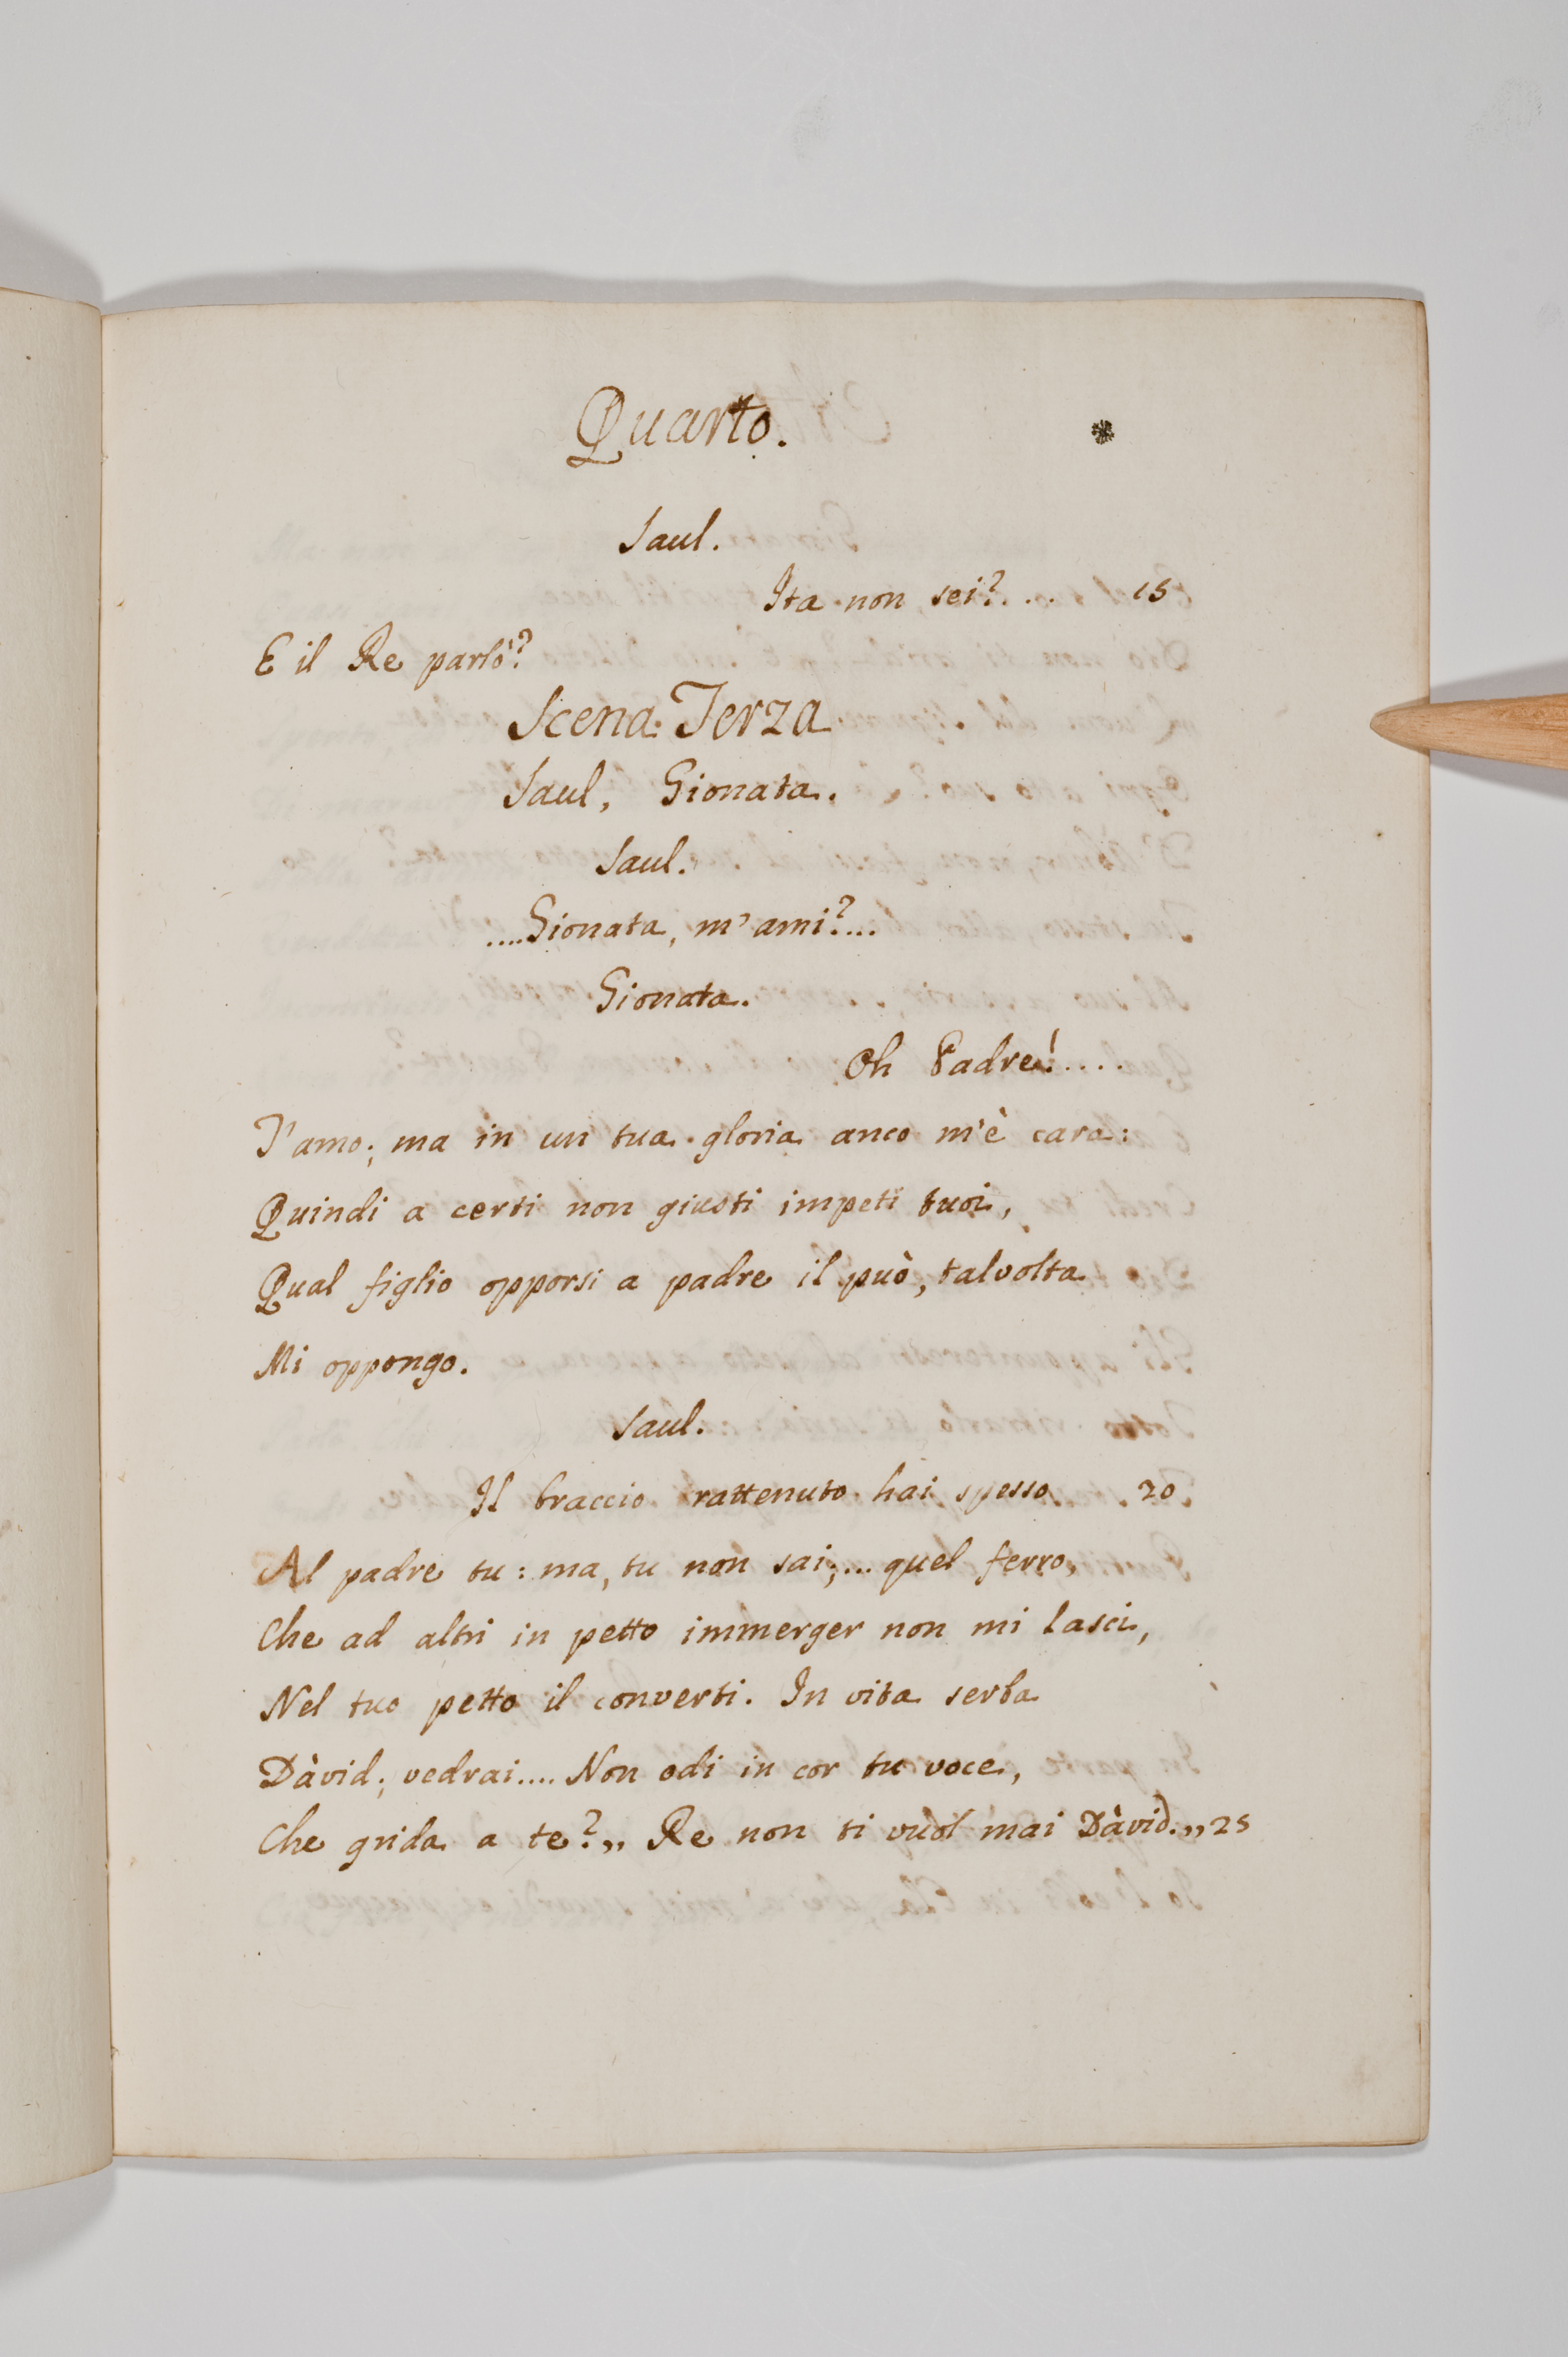 Quarto.
Saul.
Ita non sei?.... 15
E il Re parlò?
Scena Terza
Saul, Gionata.
Saul.
....Gionata, m'ami?...
Gionata.
Oh Padre!....
T'amo; ma in un tua gloria anco m'è cara:
Quindi a certi non giusti impeti tuoi,
Qual figlio opporsi a padre il può, talvolta
Mi oppongo.
Saul.
Il braccio rattenuto hai spesso 20
Al padre tu: ma, tu non sai;... quel ferro,
Che ad altri in petto immerger non mi lasci,
Nel tuo petto il converti. In vita serba
Dàvid; vedrai.... Non odi in cor tu voce,
Che grida a te?„ Re non ti vuol mai Dàvid.„ 25